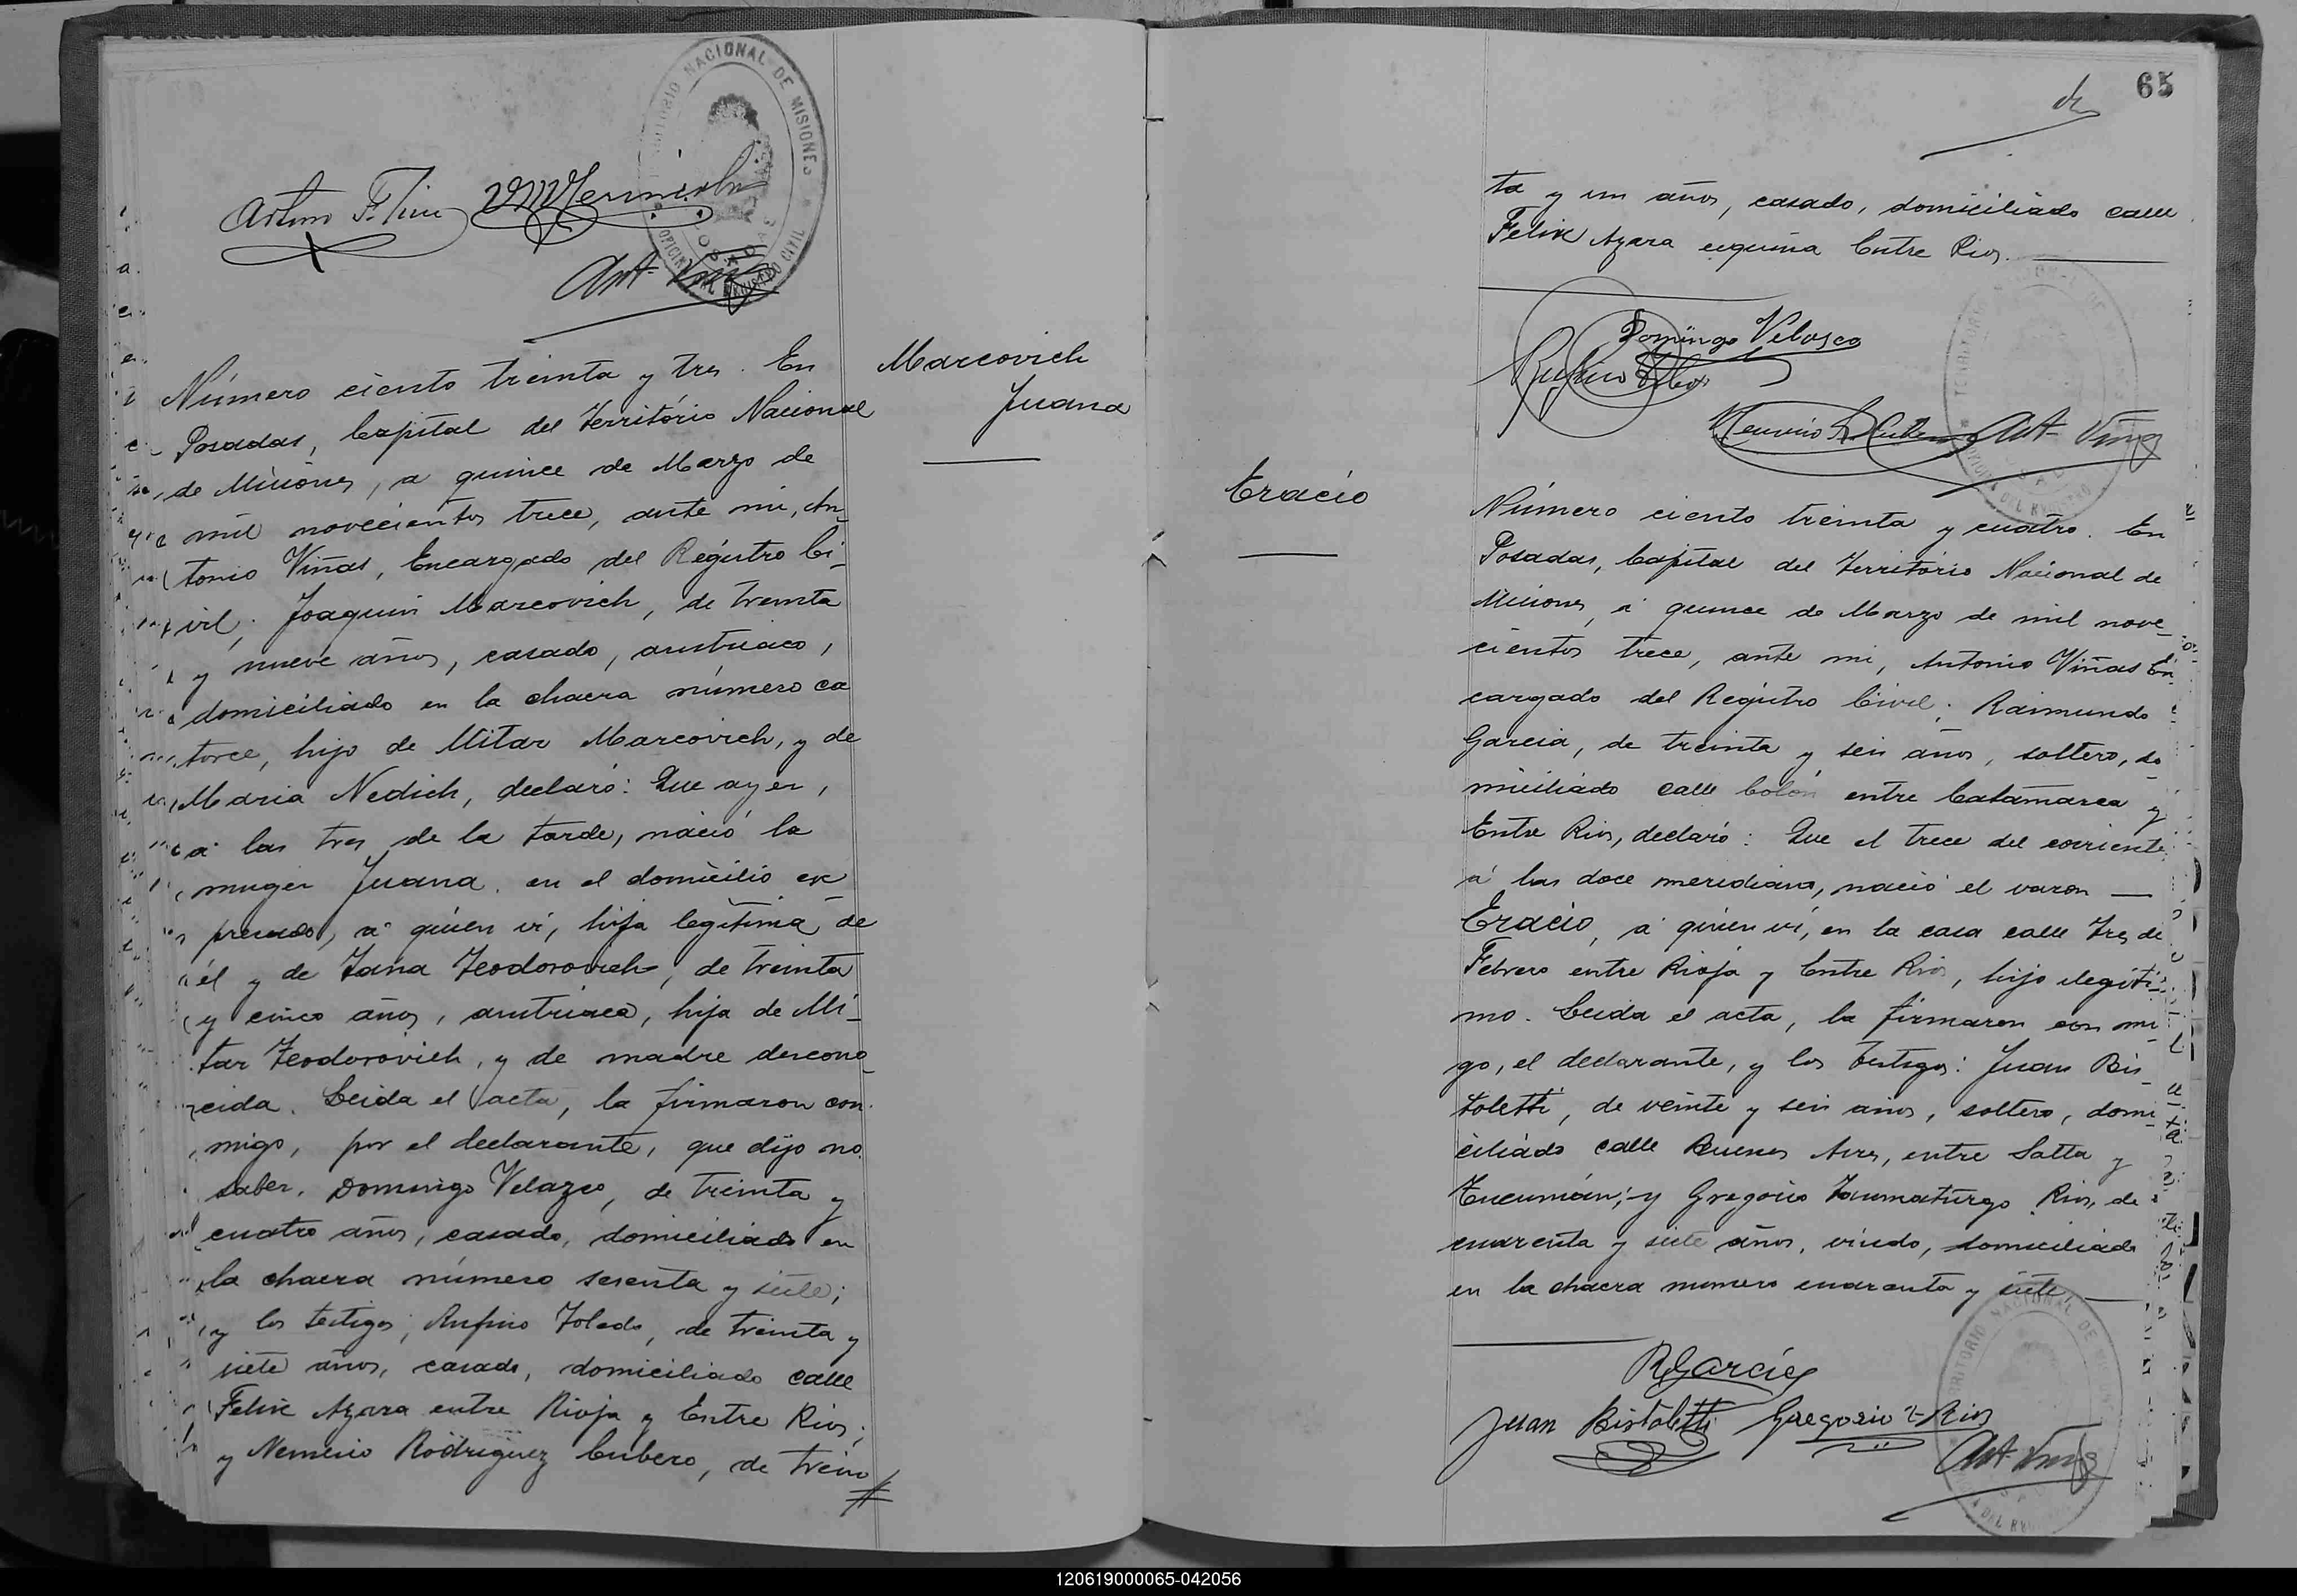 TERRITORIO NACIONAL DE MISIONES
OFICINA DEL REGISTRO CIVIL
POSADAS
Ant. Viñas
Marcovich
Juana
Número ciento treinta y tres. En
Posadas, Capital del Territorio Nacional
de Misiones, a quince de Marzo de
mil novecientos trece, ante mi, An_
tonio Viñas, Encargado del Registro Ci_
vil; Joaquin Marcovich, de treinta
y nueve años, casado, austriaco,
domiciliado en la chacra número ca
torce, hijo de Mitar Marcovich, y de
Maria Nedich, declaró: Que ayer,
á las tres de la tarde, nació la
muger Juana, en el domicilio ex
presado, á quien vi, hija legitima de
él y de Jana Teodorovich, de treinta
y cinco años, austriaca, hija de Mi_
tar Teodorovich, y de madre descono_
cida. Leida el acta, la firmaron con
migo, por el declarante, que dijo no
saber, Domingo Velazco, de treinta y
cuatro años, casado, domiciliado en
la chacra número sesenta y siete;
y los testigos; Rufino Toledo, de treinta y
siete años, casado, domiciliado calle
Felix Azara entre Rioja y Entre Rios;
y Nemesio Rodriguez Cubero, de trein
65
ta y un años, casado, domiciliado calle
Felix Azara esquina Entre Rios.
Domingo Velasco
Ant. Viñas
Eracio
Número ciento treinta y cuatro. En
Posadas, Capital del Territorio Nacional de
Misiones, á quince de Marzo de mil nove_
cientos trece, ante mi, Antonio Viñas En
cargado del Registro Civil; Raimundo
Garcia, de treinta y seis años, soltero, do
miciliado calle Colón entre Catamarca y
Entre Rios, declaró: Que el trece del corriente
á las doce meridiano, nació el varon
Eracio, á quien vi, en la casa calle Tres de
Febrero entre Rioja y Entre Rios, hijo ilegiti_
mo. Leida el acta, la firmaron con mi
go, el declarante, y los testigos: Juan Bis_
toletti, de veinte y seis años, soltero, domi_
ciliado calle Buenos Aires, entre Salta y
Tucumán; y Gregorio Taumaturgo Rios, de
cuarenta y siete años, viudo, domiciliado
en la chacra numero cuarenta y siete.
R Garcia
Juan Bistoletti Gregorio T Rios
Ant Viñas
120619000065-042056